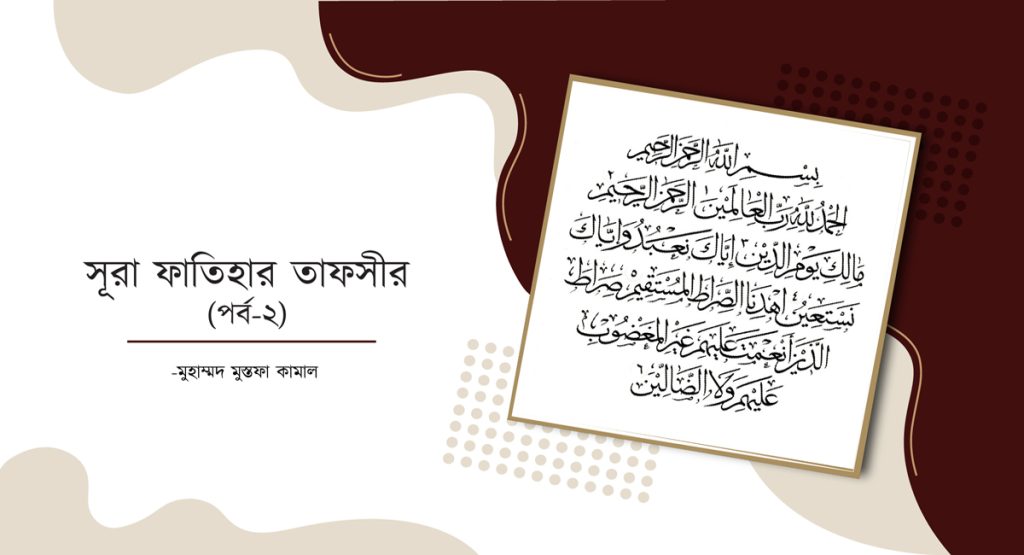 সূরা ফাতিহার তাফসীর
(পর্ব-২)
-মুহাম্মদ মুস্তফা কামাল
بِسْمِ اللَّهِ الرَّحْمَنِ الرَّحِيمِ
الْحَمْدُ لِلَّهِ رَبِّ الْعَالَمِيْنَ الرَّحْمَنِ الرَّحِيمِ
مَالِكِ يَوْمِ الدِّيْنِ إِيَّاكَ نَعْبُدُ وَإِيَّاكَ
نَسْتَعِيْنُ اهْدِنَا الصِّرَاطَ الْمُسْتَقِيْمَ صِرَاطَ
الَّذِيْنَ أَنْعَمْتَ عَلَيْهِمْ غَيْرِ الْمَغْضُوبِ
عَلَيْهِمْ وَلَا الضَّالِّيْنَ